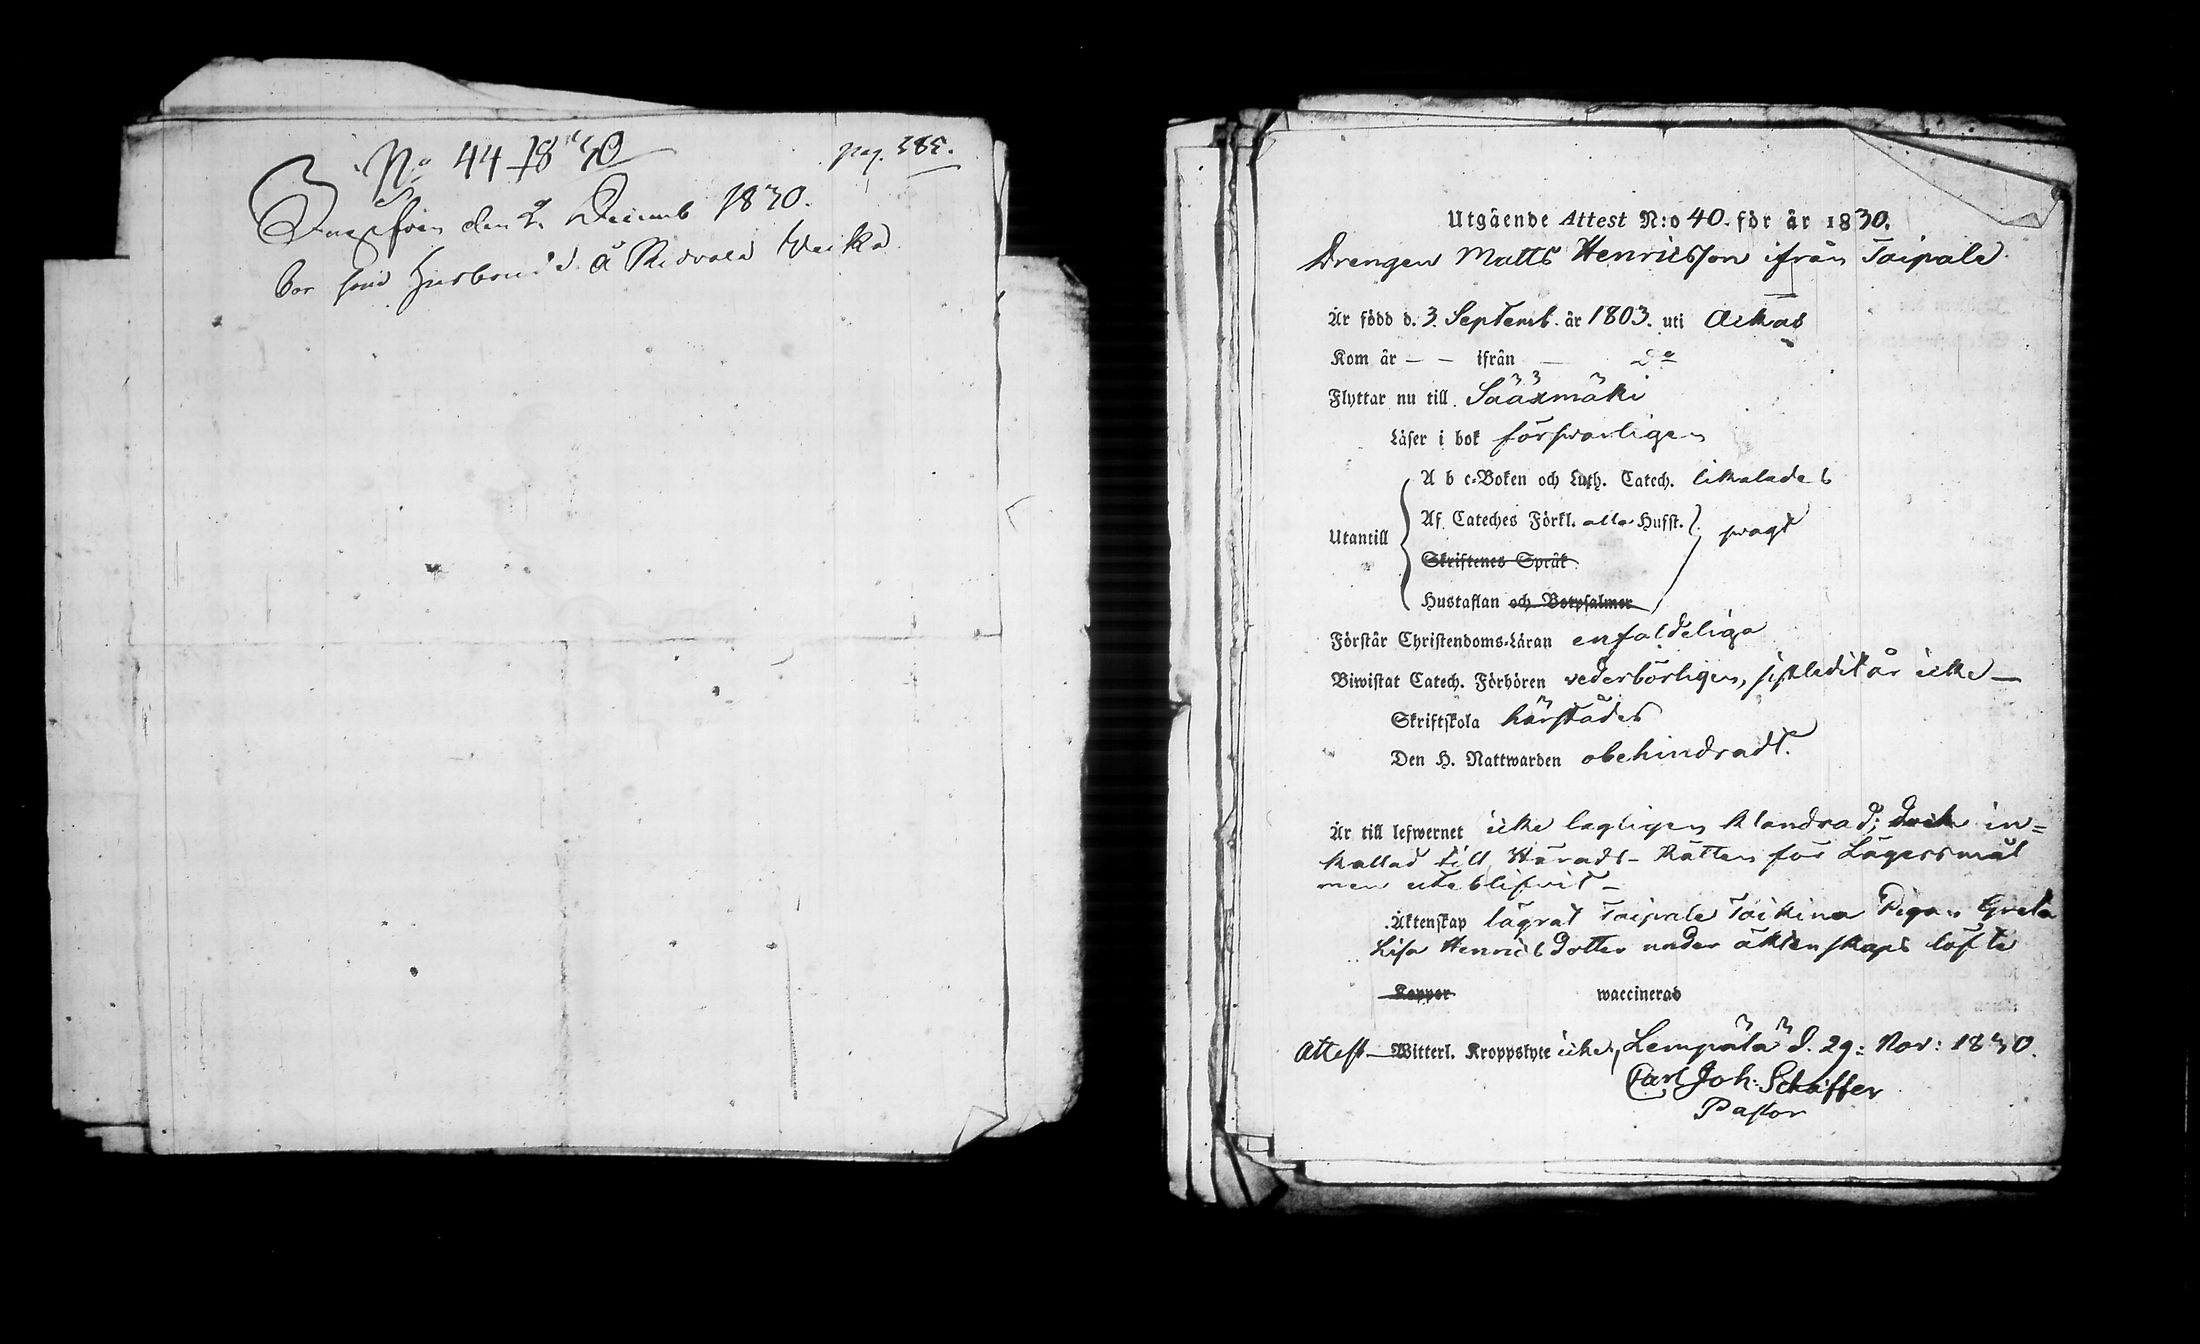 No 44 1830
pag. 385.
den 2 Decemb 1830.
Bor som Husbond å Ridvala Weika
Utgående Attest N:o 40. för år 1830.
Drengen Matts Henricsson ifrån Taipale.
Är född d. 3 Septemb. år 1803. uti Ackas
Kom år — — ifrån — Do
Flyttar nu till Sääxmäki
Läser i bok försvarligen
A b c-Boken och Luth. Catech. likaledes
Utantill
Af Cateches Förkl. alla Hufst.
svagt
Skriftenes Språk
Hustaflan och Botpsalmer
Förstår Christendoms-Läran enfaldeliga
Biwistat Catech. Förhören vederbörligen, sistledit år icke —
Skriftskola härstädes
Den H. Nattwarden obehindradt.
Är till lefwernet icke lagligen klandrad; dock in=
kallad till Härads-Rätten för Lägersmål
men uteblifvit —
Äktenskap lägrat Taipale Toikina Pigan Greta
Lisa Henricsdotter under äktenskaps löfte
Koppor waccinerad
Attest — Witterl. Kroppslyte icke, Lempälä d. 29: Nov: 1830.
Carl Joh: Schäffer
Pastor